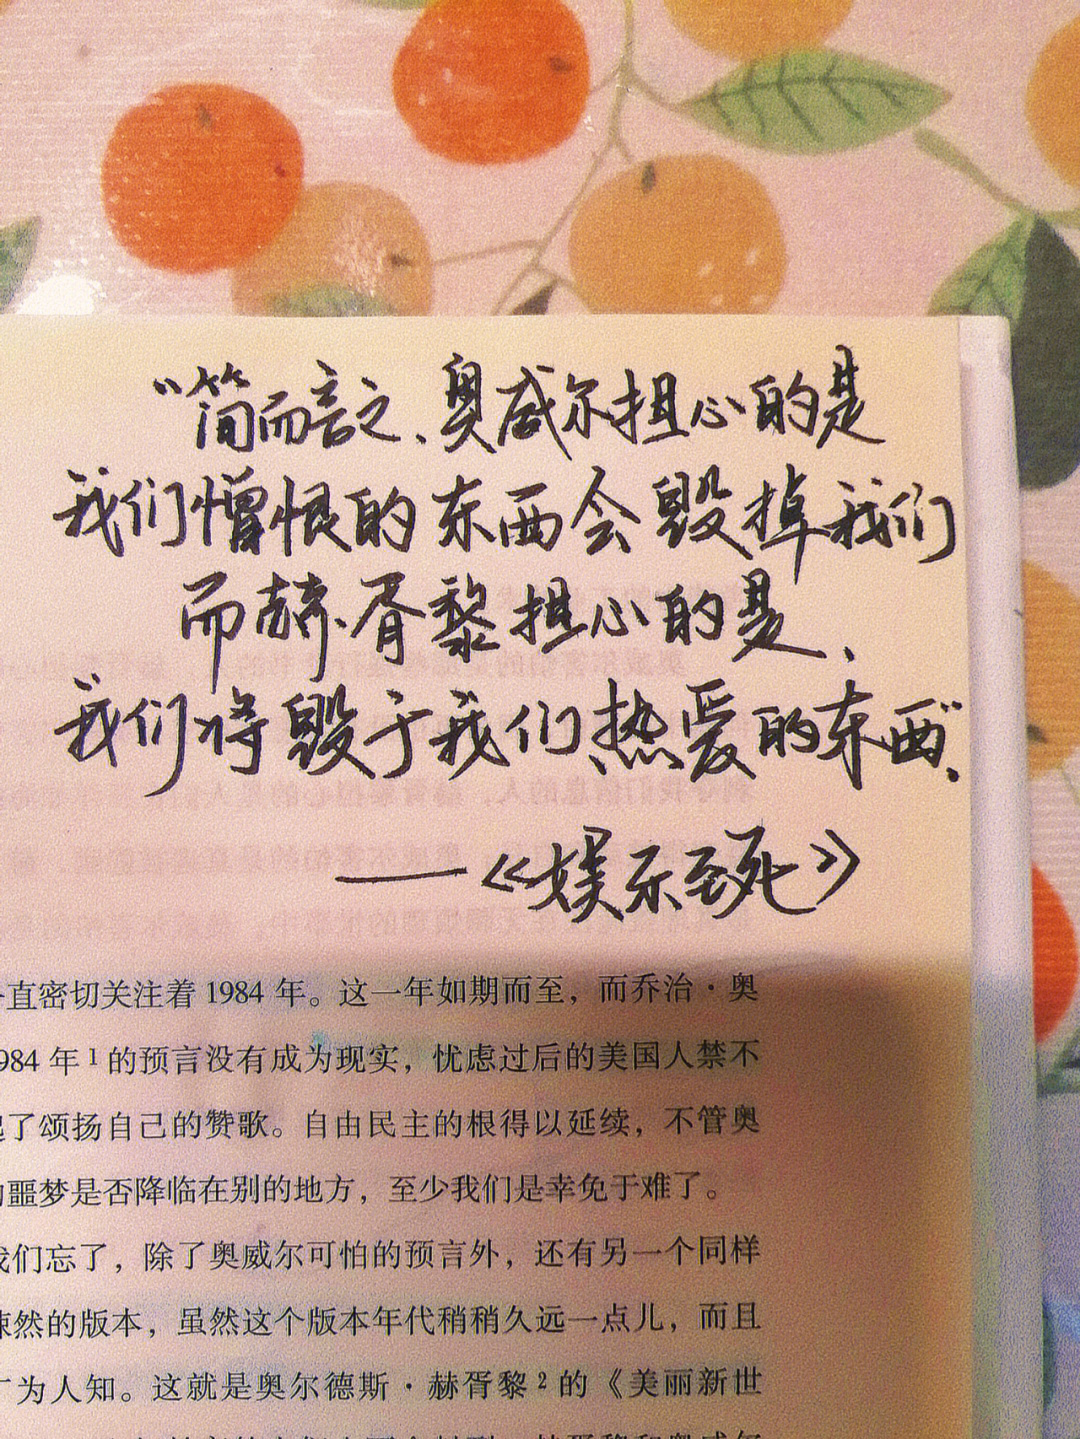 “简而言之、奥威尔担心的是
我们憎恨的东西会毁掉我们
而赫胥黎担心的是、
我们将毁于我们热爱的东西”.
——《娱乐至死》
直密切关注着 1984 年。这一年如期而至，而乔治·奥
984 年¹的预言没有成为现实，忧虑过后的美国人禁不
起了颂扬自己的赞歌。自由民主的根得以延续，不管奥
的噩梦是否降临在别的地方，至少我们是幸免于难了。
我们忘了，除了奥威尔可怕的预言外，还有另一个同样
悚然的版本，虽然这个版本年代稍稍久远一点儿，而且
广为人知。这就是奥尔德斯·赫胥黎²的《美丽新世